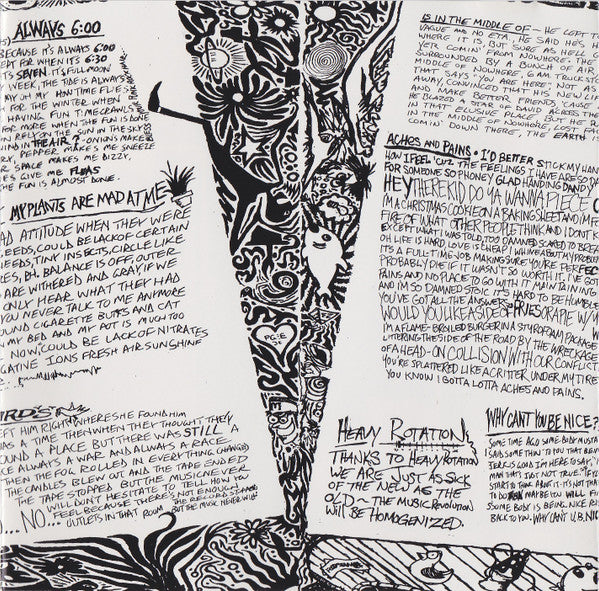 ALWAYS 6:00
BECAUSE IT'S ALWAYS 6:00
EPT FOR WHEN IT'S 6:30
TS SEVEN. IT'S FULL MOON
WEEK, THE TIDE IS ALWAYS
MY OH MY HOW TIME FLIES
FOR THE WINTER WHEN
HAVING FUN TIME CRAWLS
FOR MORE WHEN THE FUN IS DONE
N RELY ON THE SUN IN THE SKY
IND IN THE AIR? ONIONS MAKE
RY, PEPPER MAKES ME SNEEZE
R SPACE MAKES ME DIZZY,
ES GIVE ME FLEAS
HE FUN IS ALMOST DONE.
MY PLANTS ARE MAD AT ME
AD ATTITUDE WHEN THEY WERE
EEDS, COULD BE LACK OF CERTAIN
EEDS, TINY INSECTS, CIRCLE LIKE
ES, P.H. BALANCE IS OFF, OUTER
ARE WITHERED AND GRAY, IF WE
ONLY HEAR WHAT THEY HAD
YOU NEVER TALK TO ME ANYMORE
OUND CIGARETTE BUTTS AND CAT
MY BED AND MY POT IS MUCH TOO
NOW, COULD BE LACK OF NITRATES
GATIVE IONS FRESH AIR SUNSHINE
BIRDS
EFT HIM RIGHT WHERE SHE FOUND HIM
AS A TIME THEN WHEN THEY THOUGHT THEY
OUND A PLACE BUT THERE WAS STILL A
CE ALWAYS A WAR AND ALWAYS A RACE
WHEN THE FOG ROLLED IN EVERYTHING CHANGED
THE CANDLES BLEW OUT AND THE TAPE ENDED
THE TAPE STOPPED BUT THE MUSIC NEVER
WILL DON'T HESITATE TO TELL HOW YOU
FEEL BECAUSE THERE'S NOT ENOUGH
...NO... OUTLETS IN THAT ROOM
THE RECORD STOPPED
BUT THE MUSIC NEVER WILL
PG&E
IS IN THE MIDDLE OF - HE LEFT TO
VAGUE AND NO ETA, HE SAID HE'S H
WHERE IT IS, BUT SURE AS HELL
YER COMIN' FROM NOWHERE THEN
SURROUNDED BY A BUNCH OF AIR
MIDDLE OF NOWHERE, 6 AM TRUCK STO
THAT SAYS "YOU ARE HERE", NOT AS
AWAY, CONVINCED THAT HIS NEW LI
AND MAKE BETTER FRIENDS 'CAUSE
HE BLAZED A STAR OF DAVID ACRES THE
IN THAT ELUSIVE PLACE, BEFORE
IN THE MIDDLE OF NOWHERE, LOST FAC
COMIN' DOWN THERE, THE EARTH
ACHES AND PAINS • I'D BETTER STICK MY HAN
HOW I FEEL 'CUZ THE FEELINGS I HAVE ARE SO
FOR SOMEONE SO PHONEY GLAD HANDING DANDY
HEY THERE KID DO YA WANNA PIECE O
I'M A CHRISTMAS COOKIE ON A BAKING SHEET AND I'M
FIRE OF WHAT OTHER PEOPLE THINK AND I DON'T K
EXCEPT WHAT I WAS TOLD, TOO DAMNED SCARED TO BREA
OH LIFE IS HARD, LOVE IS CHEAP I WHINE ABOUT MY PROB
IT'S A FULL-TIME JOB MAKING SURE YOU'RE PERFEC
PROBABLY DIE IF IT WASN'T SO WORTH IT, I'VE GOT
PAINS AND NO PLACE TO GO WITH IT MAINTAINING
AND I'M SO DAMNED STOIC IT'S HARD TO BE HUMBLE
YOU'VE GOT ALL THE ANSWERS
WOULD YOU LIKE A SIDE OF FRIES OR A PIE W/ M
I'M A FLAME-BROILED BURGER IN A STYROFOAM PACKAGE
LITTERING THE SIDE OF THE ROAD BY THE WRECKAGE
OF A HEAD-ON COLLISION WITH OUR CONFLICTI
YOU'RE SPLATTERED LIKE A CRITTER UNDER MY TIRE
YOU KNOW I GOTTA LOTTA ACHES AND PAINS.
HEAVY ROTATION
THANKS TO HEAVY ROTATION
WE ARE JUST AS SICK
OF THE NEW AS THE
OLD - THE MUSIC REVOLUTION
WILL BE HOMOGENIZED.
WHY CAN'T YOU BE NICE?
SOME TIME AGO SOME BODY MUSTA
I SAID SOMETHIN' TO YOU THAT BEN
JERK IS GOOD I'M HERE TO SAY,
MAN THAT'S JUST NOT TRUE. IF
START TO THAT IT'S NOT
TO DO MAYBE YOU WILL FI
SOME BODY IS BEING NICE
BACK TO YOU. WHY CAN'T U.B. NIC